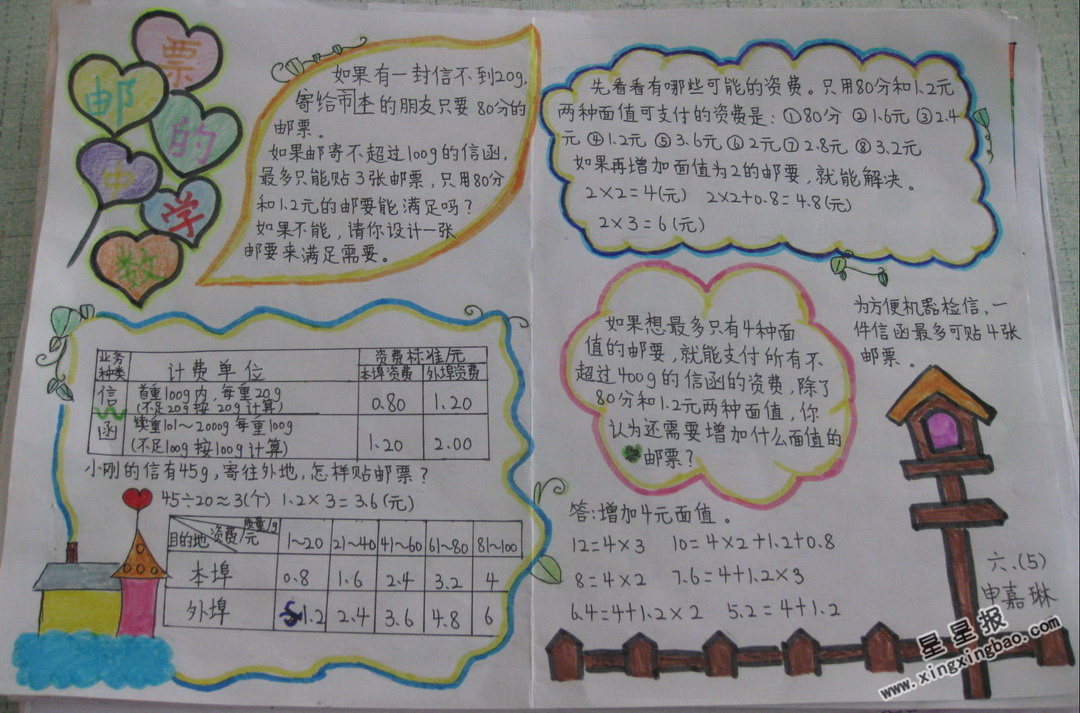 票
邮
的
中
学
数
如果有一封信不到20g,
寄给市本的朋友只要80分的
邮票。
如果邮寄不超过100g的信函,
最多只能贴3张邮票,只用80分
和1.2元的邮要能满足吗?
如果不能,请你设计一张
邮要来满足需要。
先看看有哪些可能的资费。只用80分和1.2元
两种面值可支付的资费是:①80分 ②1.6元 ③2.4
元 ④1.2元 ⑤3.6元 ⑥2元 ⑦2.8元 ⑧3.2元
如果再增加面值为2的邮要,就能解决。
2×2=4(元) 2×2+0.8=4.8(元)
2×3=6(元)
业务种类 计费单位 资费标准/元
本埠资费 外埠资费
信函 首重100g内,每重20g
(不足20g按20g计算) 0.80 1.20
续重101~2000g每重100g
(不足100g按100g计算) 1.20 2.00
小刚的信有45g,寄往外地,怎样贴邮票?
45÷20≈3(个) 1.2×3=3.6(元)
目的地 资费/元 质量/g 1~20 21~40 41~60 61~80 81~100
本埠 0.8 1.6 2.4 3.2 4
外埠 1.2 2.4 3.6 4.8 6
如果想最多只有4种面
值的邮要,就能支付所有不
超过400g的信函的资费,除了
80分和1.2元两种面值,你
认为还需要增加什么面值的
邮票?
为方便机器检信,一
件信函最多可贴4张
邮票。
答:增加4元面值。
12=4×3 10=4×2+1.2+0.8
8=4×2 7.6=4+1.2×3
6.4=4+1.2×2 5.2=4+1.2
六.(5)
申嘉琳
星星报
www.xingxingbao.com